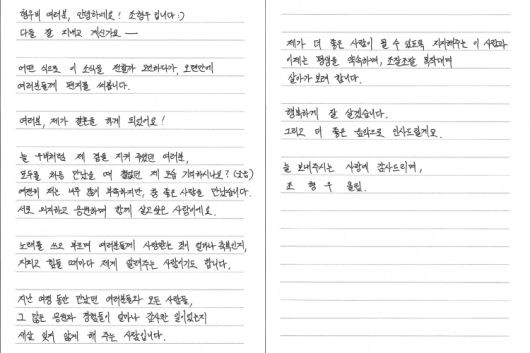 형우비 여러분, 안녕하세요! 조형우 입니다 :)
다들 잘 지내고 계신가요 —
어떤 식으로 이 소식을 전할까 고민하다가, 오랜만에
여러분들께 편지를 써봅니다.
여러분, 제가 결혼을 하게 되었어요!
늘 우비처럼 제 곁을 지켜 주었던 여러분,
모두를 처음 만났을 때 철없던 제 모습 기억하시나요? (웃음)
여전히 저는 너무 많이 부족하지만, 참 좋은 사람을 만났습니다.
서로 의지하고 응원하며 함께 살고싶은 사람이에요.
노래를 쓰고 부르며 여러분들께 사랑받는 것이 얼마나 축복인지,
지치고 힘들 때마다 제게 알려주는 사람이기도 합니다.
지난 여정 동안 만났던 여러분들과 모든 사람들,
그 많은 응원과 경험들이 얼마나 감사한 일이었는지
새삼 잊지 않게 해 주는 사람입니다.
제가 더 좋은 사람이 될 수 있도록 지지해주는 이 사람과
이제는 평생을 약속하며, 조잘조잘 복작대며
살아가 보려 합니다.
행복하게 잘 살겠습니다.
그리고 더 좋은 음악으로 인사드릴게요.
늘 보내주시는 사랑에 감사드리며,
조 형 우 올림.